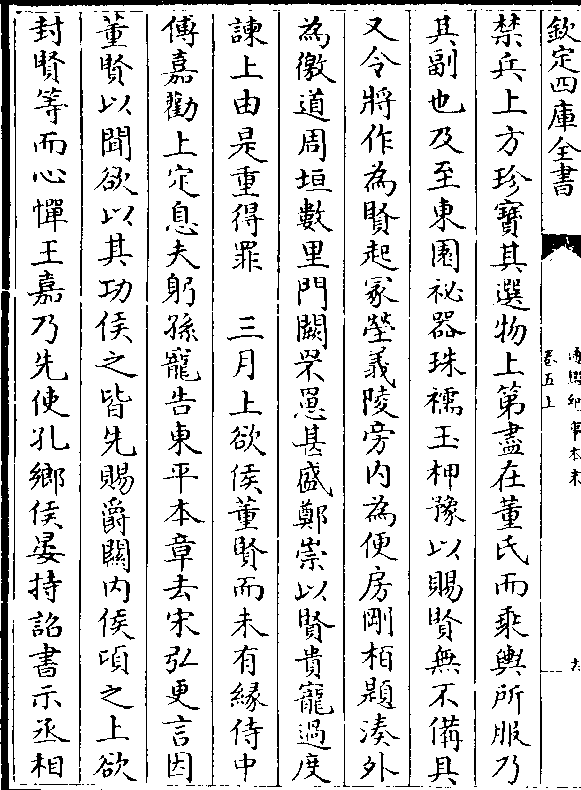 欽定四庫全書
通鑑紀事本末
卷五上
禁兵上方珍寶其選物上第盡在董氏而乘輿所服乃
其副也及至東園祕器珠襦玉柙豫以賜賢無不備具
又令將作為賢起冢塋義陵旁内為便房剛栢題湊外
為徼道周垣數里門闕罘罳甚盛鄭崇以賢貴寵過度
諫上由是重得罪　三月上欲侯董賢而未有緣侍中
傅嘉勸上定息夫躬孫寵告東平本章去宋弘更言因
董賢以聞欲以其功侯之皆先賜爵關内侯頃之上欲
封賢等而心憚王嘉乃先使孔鄉侯晏持詔書示丞相